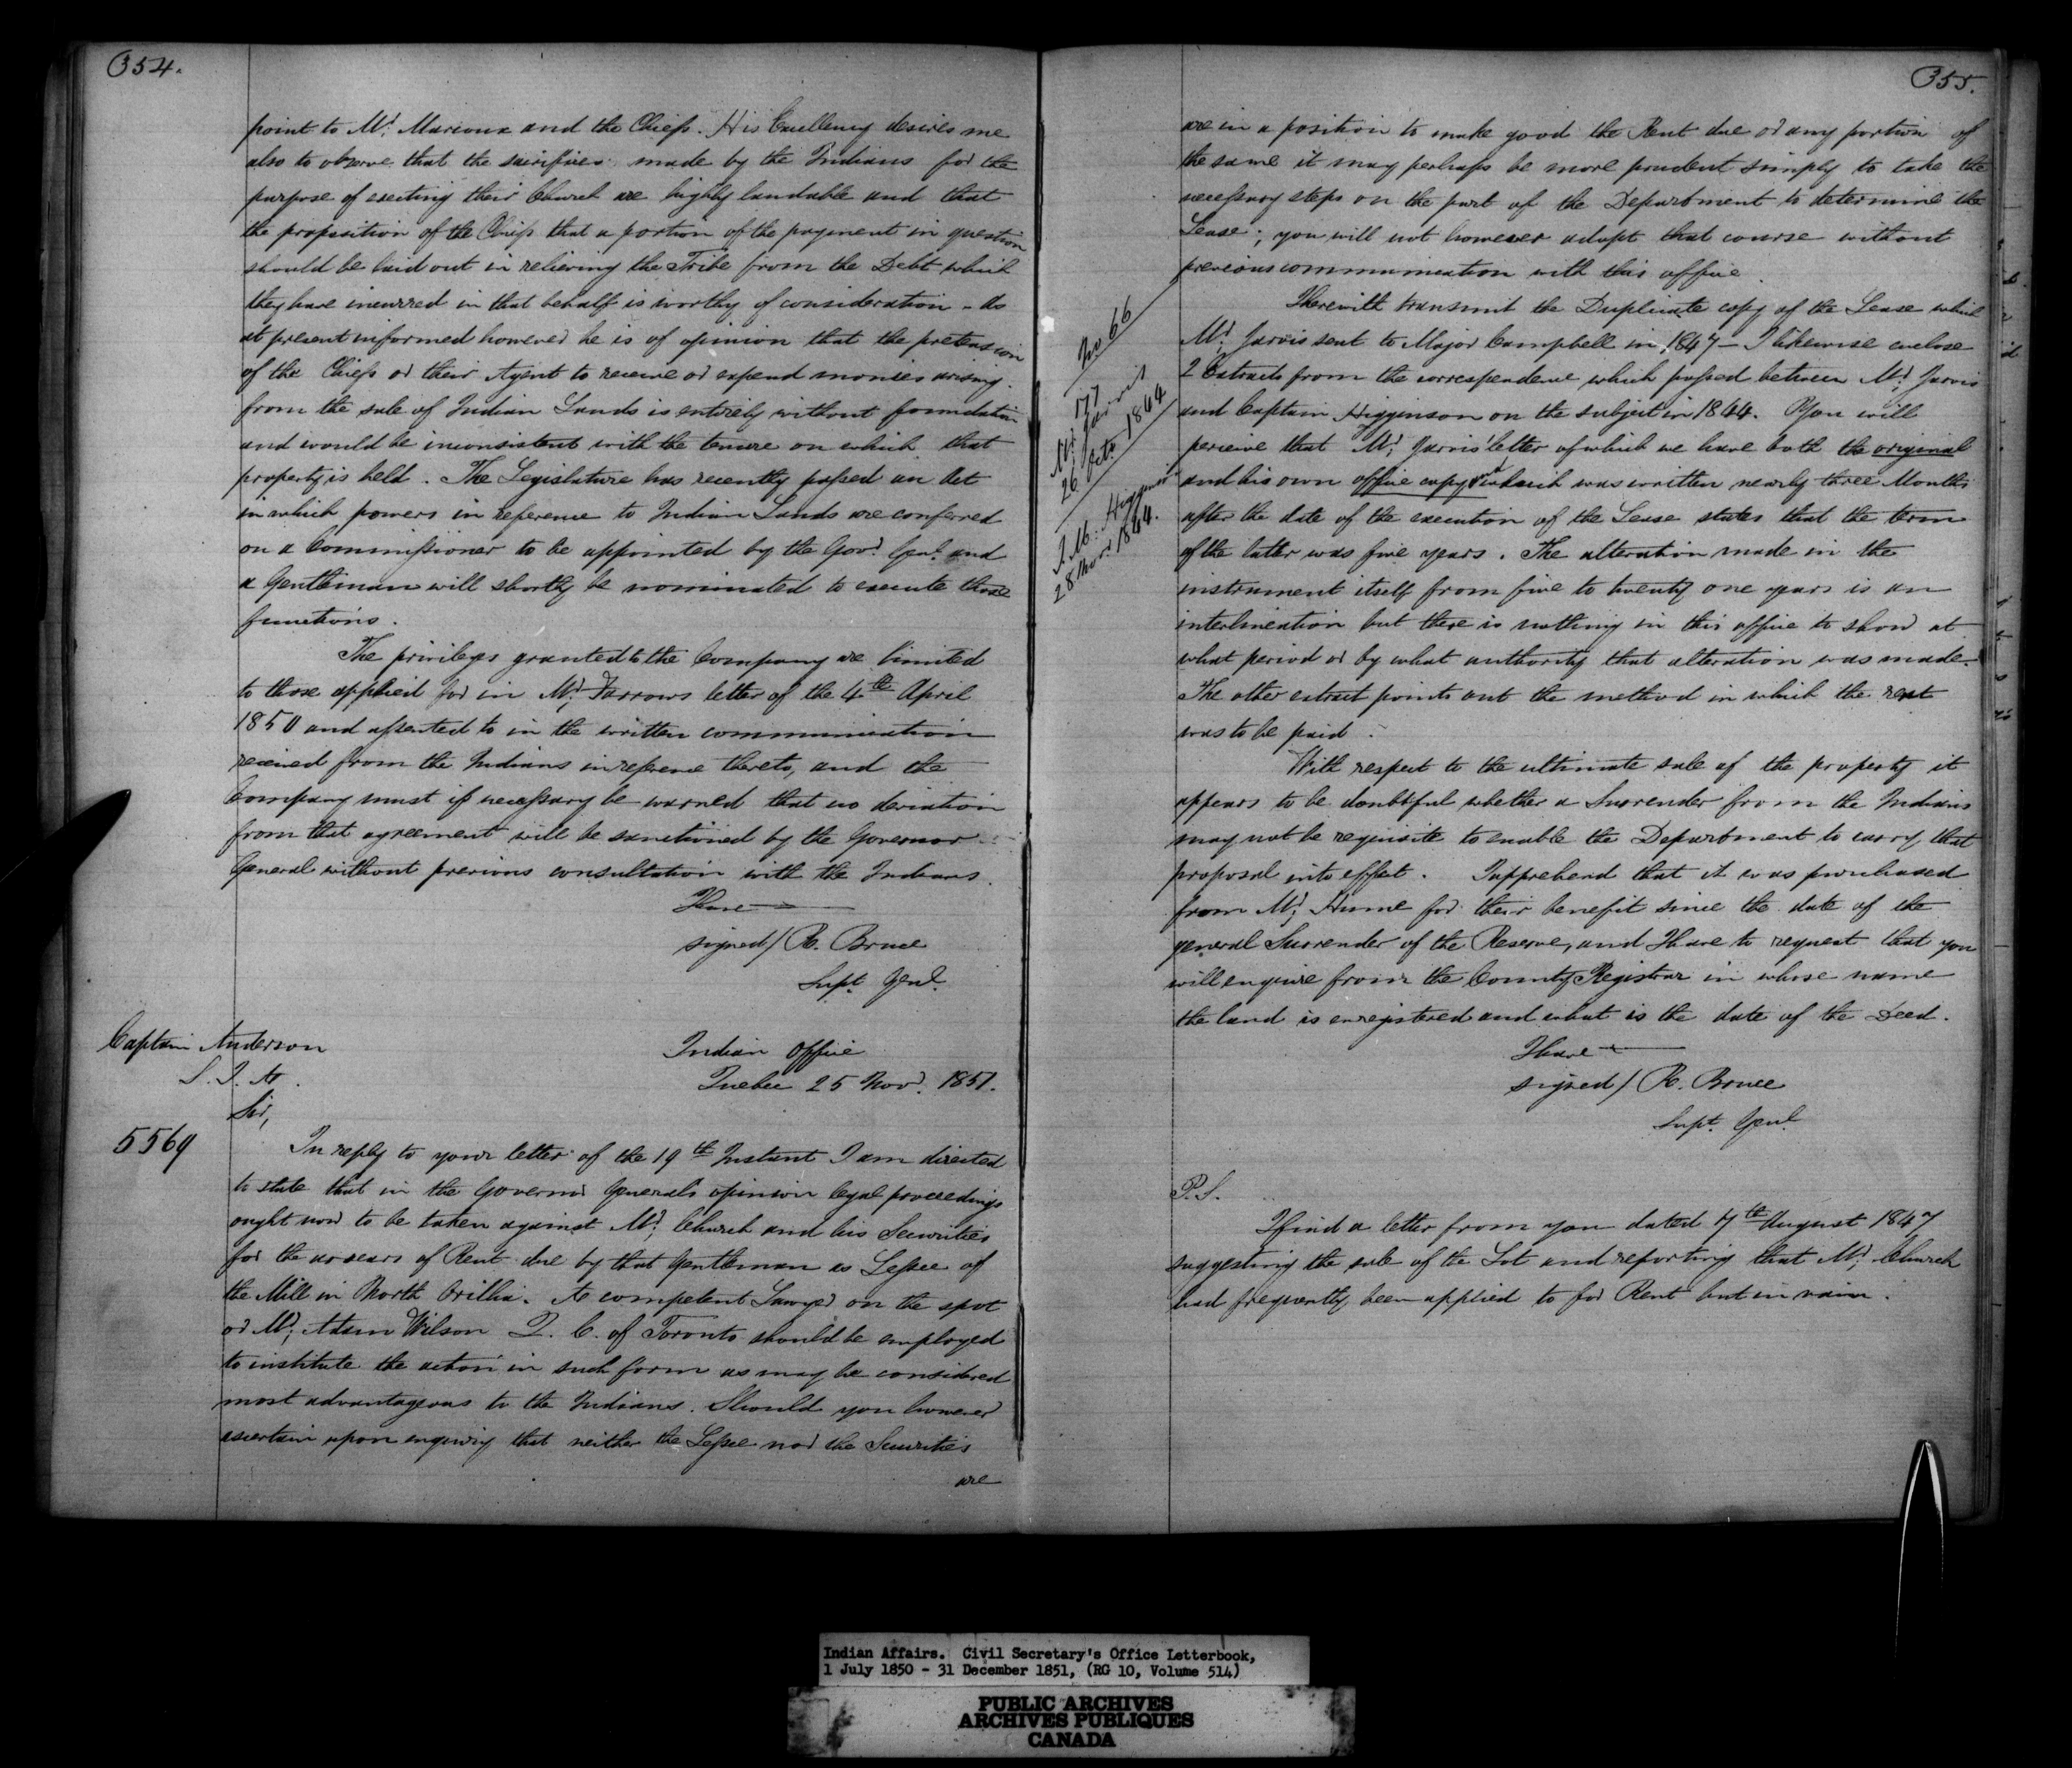 354.
point to Mr. Marioux and the Chiefs. His Excellency desires me
also to observe that the sacrifices made by the Indians for the
purpose of erecting their Church are highly laudable and that
the proposition of the Chiefs that a portion of the payment in question
should be laid out in relieving the Tribe from the Debt which
they have incurred in that behalf is worthy of consideration - As
at present informed however he is of opinion that the pretension
of the Chiefs or their Agent to receive or expend monies arising
from the sale of Indian Lands is entirely without foundation
and would be inconsistent with the tenure on which that
property is held. The Legislature has recently passed an Act
in which powers in reference to Indian Lands are conferred
on a Commissioner to be appointed by the Govr. Genl. and
a Gentleman will shortly be nominated to execute those
functions.
The privileges granted to the Company are limited
to those applied for in Mr. Farrows letter of the 4th April
1850 and assented to in the written communication
received from the Indians in reference thereto, and the
Company must if necessary be warned that no deviation
from that agreement will be sanctioned by the Governor
General without previous consultation with the Indians.
I have
signed/ R. Bruce
Supt. Genl.
Captain Anderson
S. I. A.
Indian Office
Quebec 25 Novr. 1851.
Sir,
5569
In reply to your letter of the 19th Instant I am directed
to state that in the Governor Generals opinion legal proceedings
ought now to be taken against Mr. Church and his Securities
for the arrears of Rent due by that Gentleman as Lessee of
the Mill in North Orillia. A competent Lawyer on the spot
or Mr. Adam Wilson Q. C. of Toronto should be employed
to institute the action in such form as may be considered
most advantageous to the Indians. Should you however
ascertain upon enquiry that neither the Lessee nor the Securities
are
355.
are in a position to make good the Rent due or any portion of
the same it may perhaps be more prudent simply to take the
necessary steps on the part of the Department to determine the
Lease; you will not however adopt that course without
previous communication with this office.
I herewith transmit the Duplicate copy of the Lease which
Mr. Jarvis sent to Major Campbell in 1847 - I likewise enclose
2 Extracts from the correspondence which passed between Mr. Jarvis
and Captain Higginson on the subject in 1844. You will
perceive that Mr. Jarvis' letter of which we have both the original
and his own office copy and which was written nearly three Months
after the date of the execution of the Lease states that the term
of the latter was five years. The alteration made in the
instrument itself from five to twenty one years is an
interlineation but there is nothing in this office to show at
what period or by what authority that alteration was made.
The other extract points out the method in which the rent
was to be paid.
No 66
177
Mr. Jarvis
26 Octr. 1844
J. M. Higginson
28 Novr 1844.
With respect to the ultimate sale of the property it
appears to be doubtful whether a Surrender from the Indians
may not be requisite to enable the Department to carry that
proposal into effect. I apprehend that it was purchased
from Mr. Hume for their benefit since the date of the
general Surrender of the Reserve, and I have to request that you
will enquire from the County Registrar in whose name
the land is enregistered and what is the date of the Deed.
I have
signed/ R. Bruce
Supt. Genl.
P.S.
I find a letter from you dated 7th August 1847
suggesting the sale of the Lot and reporting that Mr. Church
had frequently been applied to for Rent but in vain.
Indian Affairs. Civil Secretary's Office Letterbook,
1 July 1850 - 31 December 1851, (RG 10, Volume 514)
PUBLIC ARCHIVES
ARCHIVES PUBLIQUES
CANADA